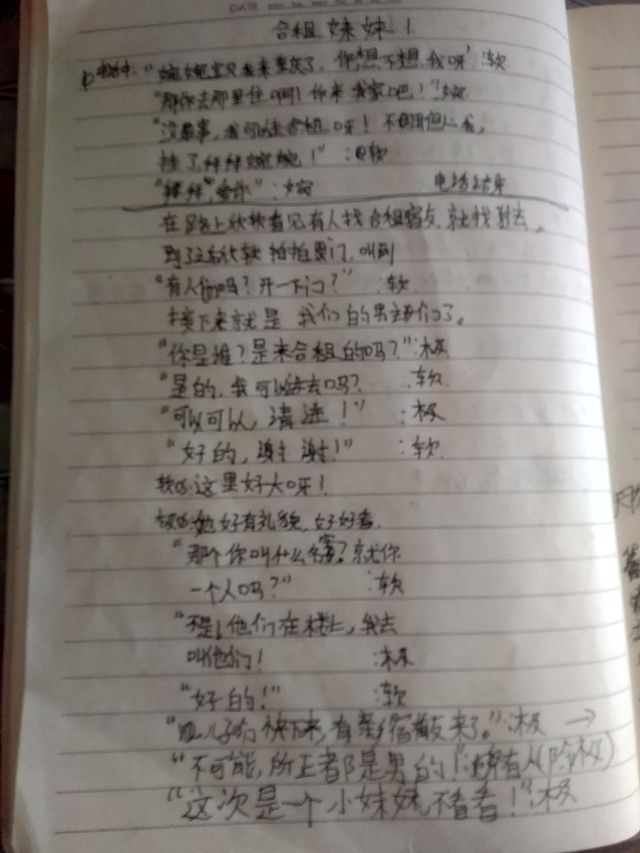 DATE
合租妹妹1
电话中："婉婉宝贝我来重庆了，你想不想我呀":软
"那你去那里住啊！你来我家吧！":婉
"没事，我可以去合租呀！不用担心我，
挂了拜拜婉婉！" :软
"拜拜 爱你":婉 电话结束
在路上软软看见有人找合租宿友，就找到去，
到了之后软软拍拍门，叫到
"有人们吗？开一下门？" :软
接下来就是我们的男主们了。
"你是谁？是来合租的吗？":极
"是的，我可以进去吗？ :软
"可以可以，请进！" :极
"好的，谢谢！" :软
软心这里好大呀！
极心她好有礼貌，好好看，
"那个你叫什么名字？就你
一个人吗？" :软
"不是！他们在楼上，我去
叫他们！ :极
"好的！" :软
快下来，有新宿友来了。":极 →
"不可能，所正者都是男的！":所有人(除极)
"这次是一个小妹妹，不看看！":极